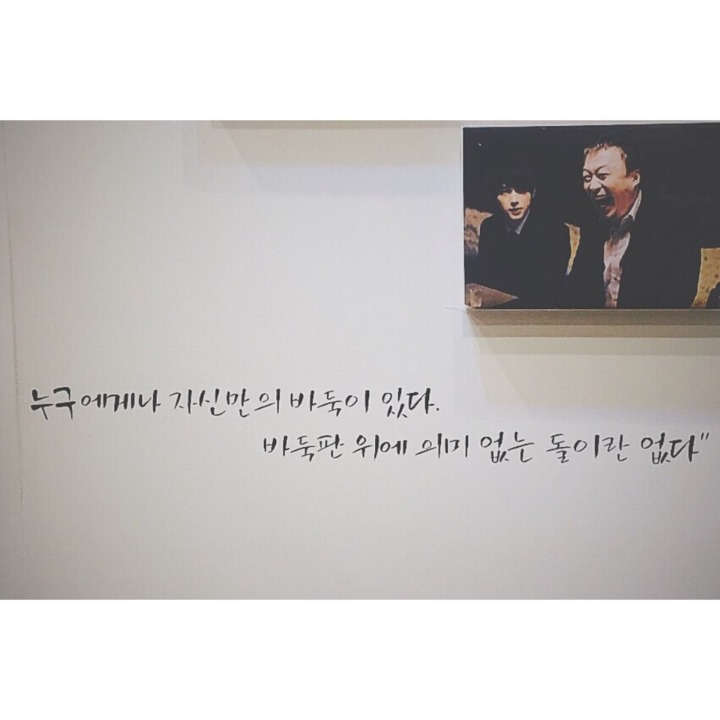 누구에게나 자신만의 바둑이 있다.
바둑판 위에 의미 없는 돌이란 없다"